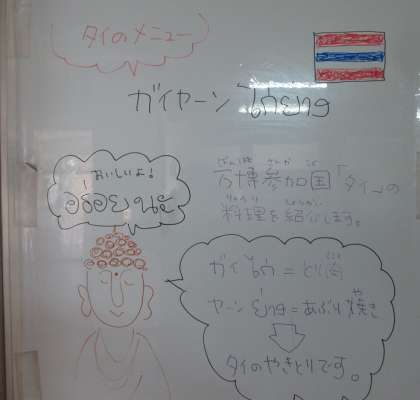 タイのメニュー
ガイヤーン ไก่ย่าง
おいしいよ!
อร่อยนะ
ばんぱく さんか こく
万博参加国「タイ」の
りょうり しょうかい
料理を紹介します。
ガイ ไก่ = とり肉
ヤーン ย่าง = あぶり焼き
タイのやきとりです。